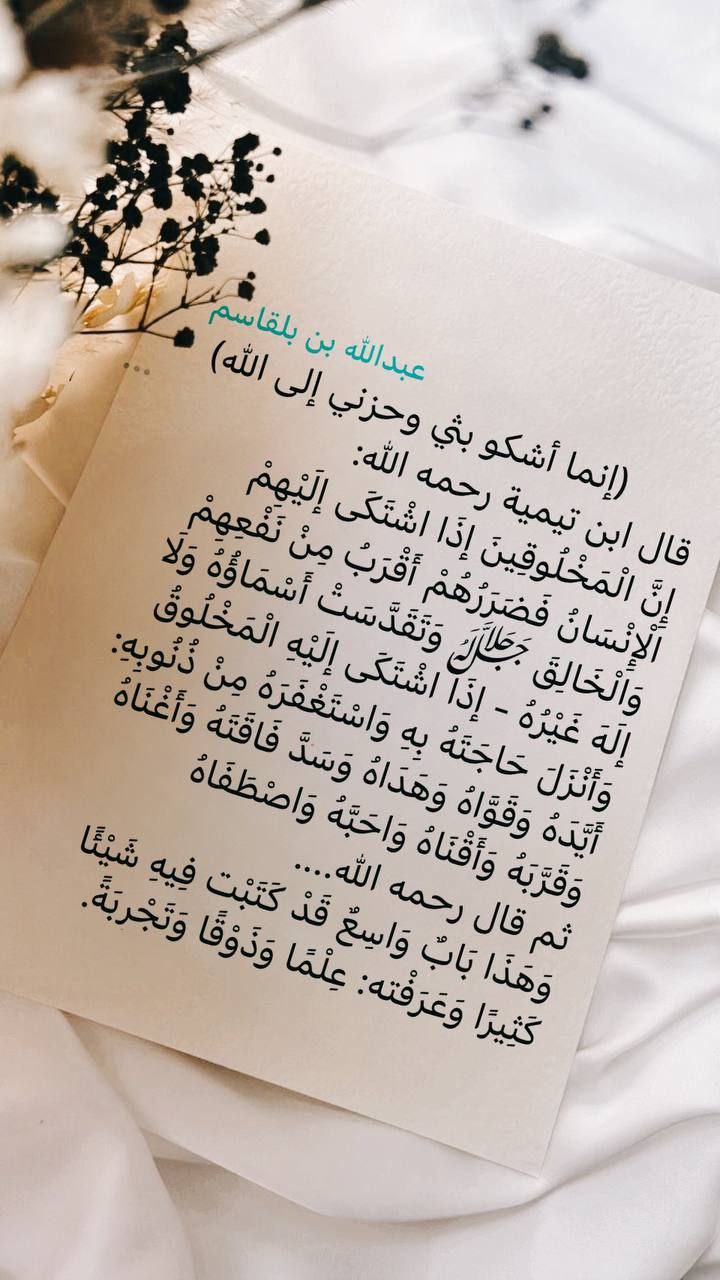 عبدالله بن بلقاسم
...
(إنما أشكو بثي وحزني إلى الله)
قال ابن تيمية رحمه الله:
إِنَّ الْمَخْلُوقِينَ إِذَا اشْتَكَى إِلَيْهِمْ
الْإِنْسَانُ فَضَرَرُهُمْ أَقْرَبُ مِنْ نَفْعِهِمْ
وَالْخَالِقَ جَلَّ جَلَالُهُ وَتَقَدَّسَتْ أَسْمَاؤُهُ وَلَا
إِلَهَ غَيْرُهُ - إِذَا اشْتَكَى إِلَيْهِ الْمَخْلُوقُ
وَأَنْزَلَ حَاجَتَهُ بِهِ وَاسْتَغْفَرَهُ مِنْ ذُنُوبِهِ:
أَيَّدَهُ وَقَوَّاهُ وَهَدَاهُ وَسَدَّ فَاقَتَهُ وَأَغْنَاهُ
وَقَرَّبَهُ وَأَقْنَاهُ وَاحَبَّهُ وَاصْطَفَاهُ
ثم قال رحمه الله....
وَهَذَا بَابٌ وَاسِعٌ قَدْ كَتَبْت فِيهِ شَيْئًا
كَثِيرًا وَعَرَفْته: عِلْمًا وَذَوْقًا وَتَجْرِبَةً.